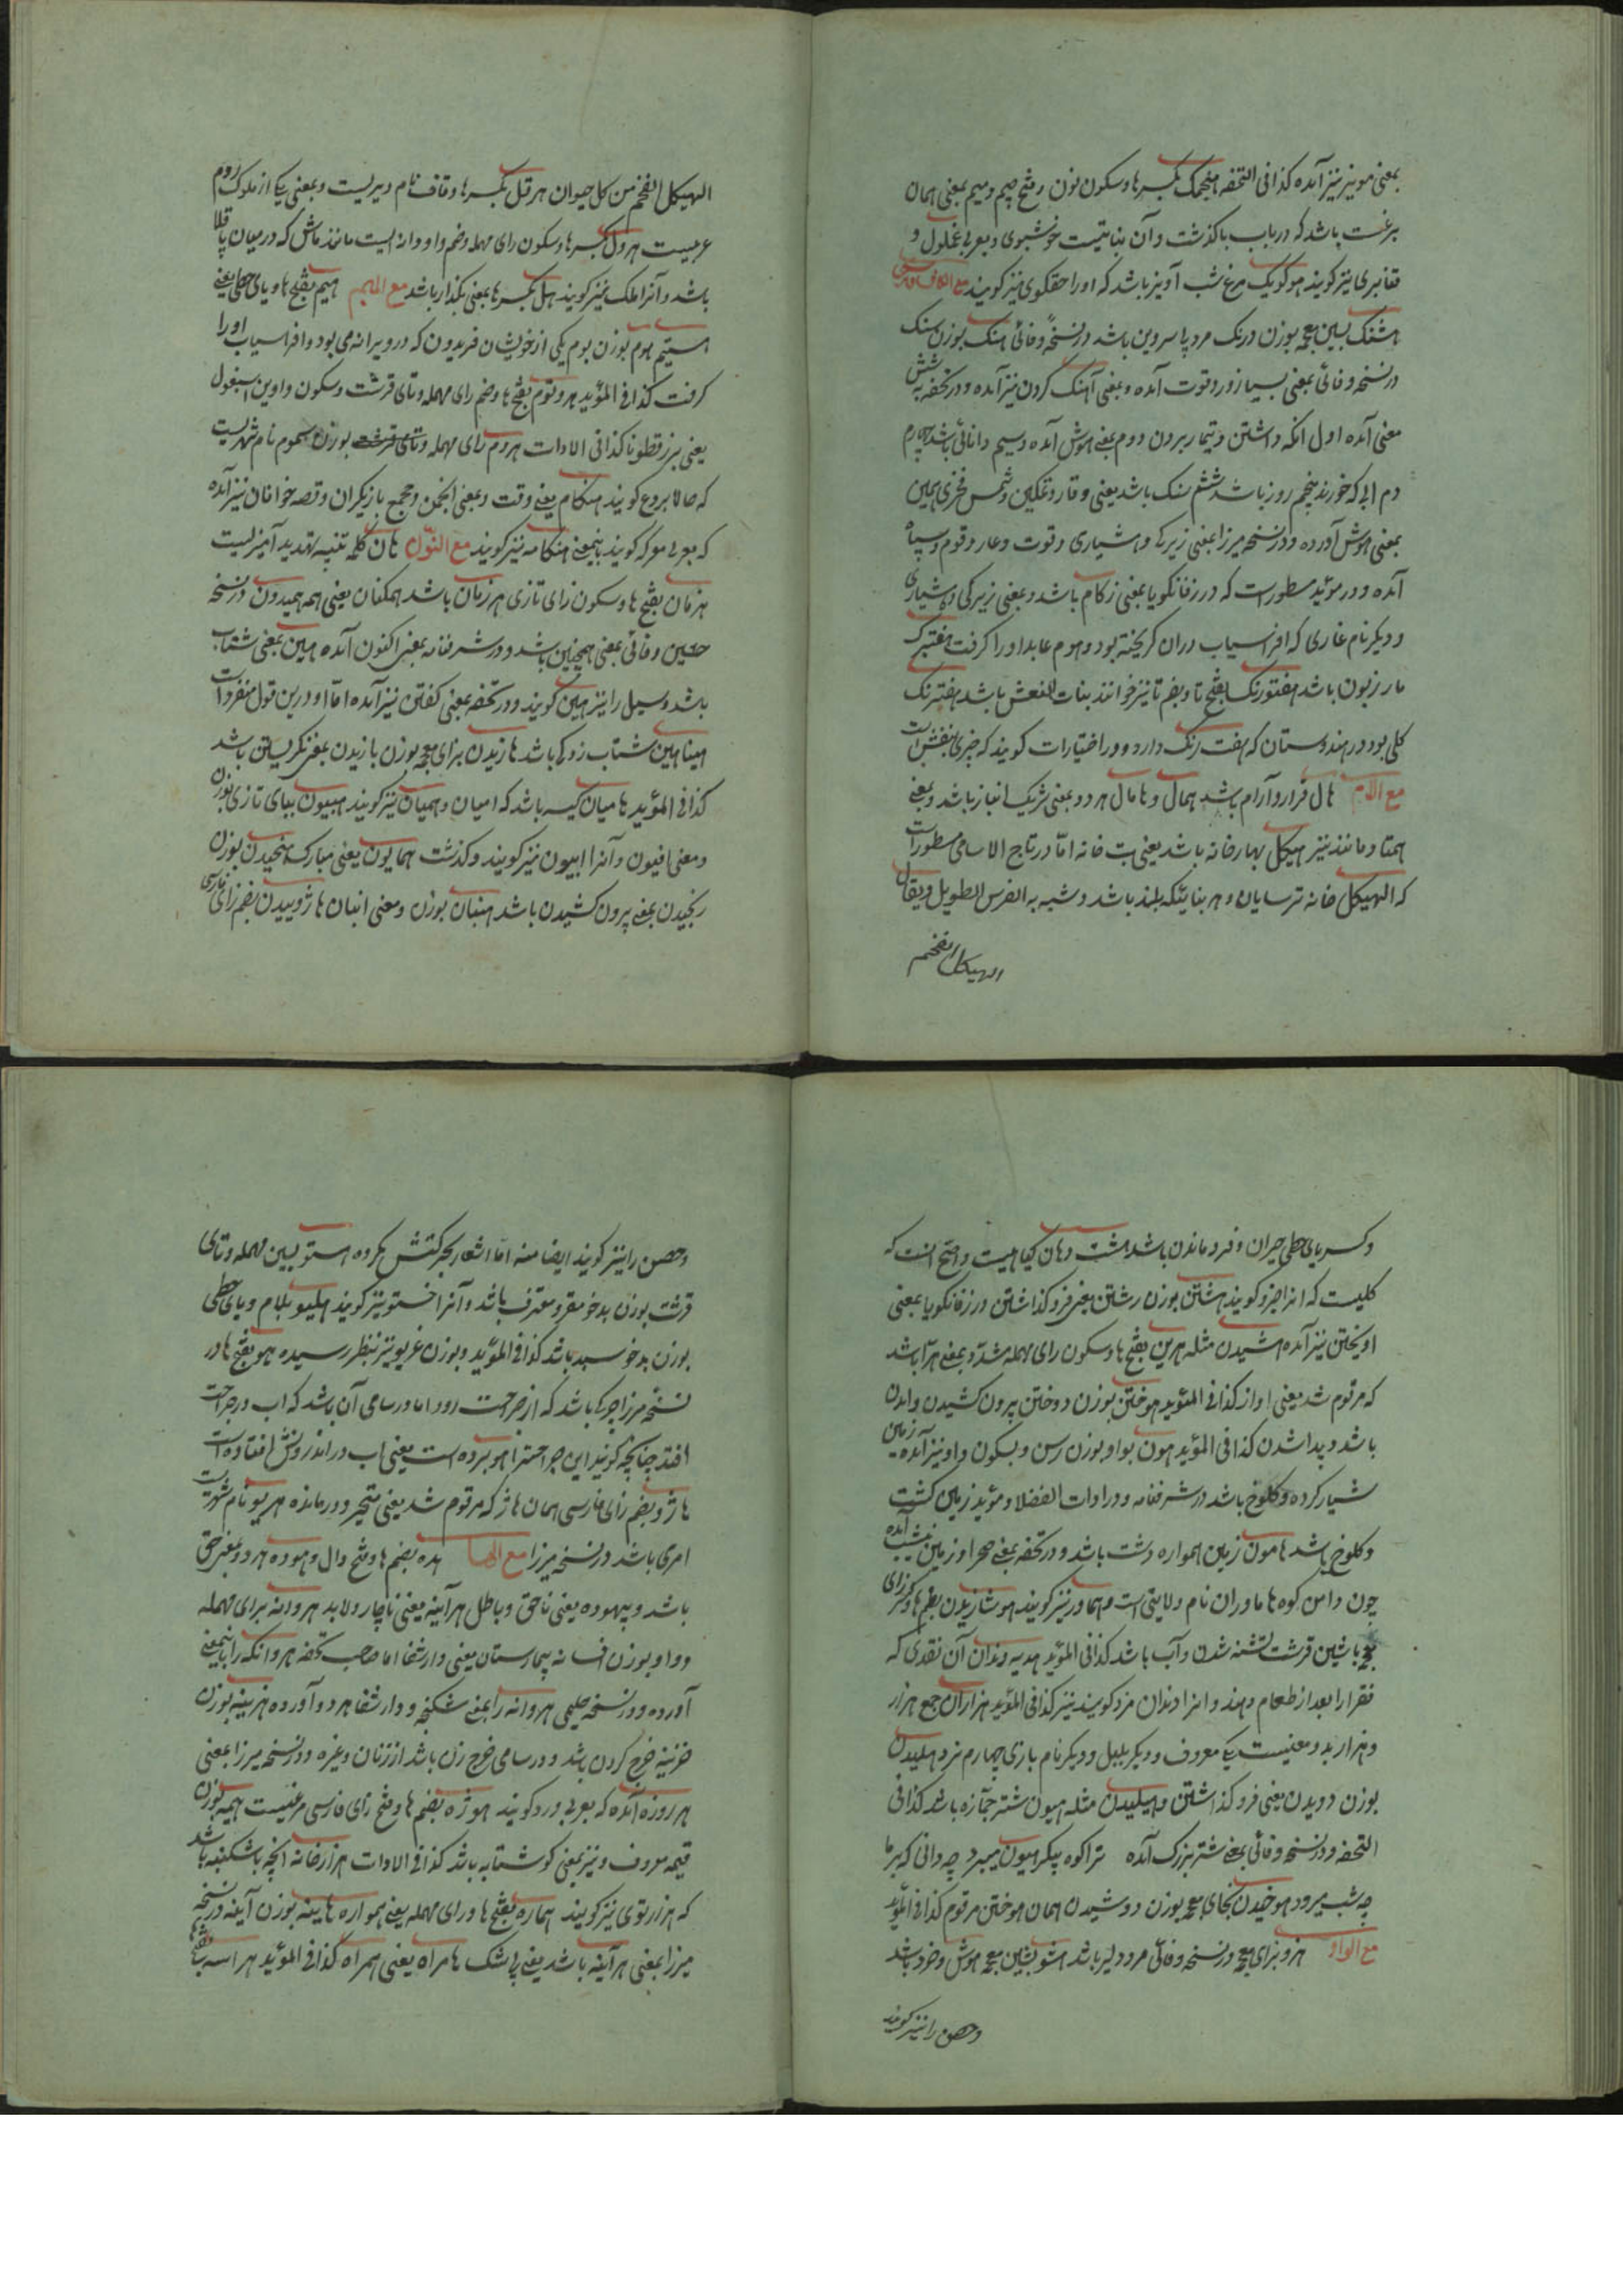 بمعنی مویز نیز آمده کذا فی التحفه هنجمک بکسر ها و سکون نون و فتح جیم و میم بمعنی همان
برغست باشد که در باب با گذشت و آن نباتیست خوشبوی و بعربی غملول و
قنابری نیز گویند هوکویک مرغ شب آویز باشد که او را حقگوی نیز گویند مع الکاف فارسی
هشنگ بشین معجمه بوزن درنگ مرد پا سر وبن باشد در نسخهٔ وفائی هنگ بوزن سنگ
در نسخه وفائی بمعنی بسیار زور و قوت آمده و بمعنی آهنگ کردن نیز آمده و در تحفه به شش
معنی آمده اول انکه داشتن و تیمار بردن دوم بمعنی هوش آمده و سیم دانائی باشد چهارم
دم ابی که خورند پنجم روز باشد ششم سنگ باشد یعنی وقار و تمکین و شمس فخری همین
بمعنی هوش آورده و در نسخه میرزا بمعنی زیرکی و هشیاری و قوت و غار و قوم و سپاه
آمده و در موید مسطور است که در زفانگویا بمعنی زکام باشد و بمعنی زیرکی و هشیاری
و دیگر نام غاری که افراسیاب دران گریخته بود و هوم عابد او را گرفت هفتیرک
مار زبون باشد هفتورنگ بفتح تا و بضم تا نیز خوانند بنات النعش باشد هفترنگ
گلی بود در هندوستان که هفت رنگ دارد و در اختیارات گویند که خیری بنفش است
مع اللام هال قرار و آرام باشد همال و هامال هر دو بمعنی شریک انباز باشد و بمعنی
همتا و مانند نیز هیکل بهارخانه باشد یعنی بت خانه اما در تاج الاسامی مسطور است
که الهیکل خانه ترسایان و هر بنائیکه بلند باشد و شبه به الفرس الطویل و یقال
الهیکل الضخم
الهیکل الضخم من کل حیوان هرقل بکسر ها و قاف نام دیریست و بمعنی یکی از ملوک روم
عربیست هرول بکسر ها و سکون رای مهمله و ضم واو دانه ایست مانند ماش که در میان باقلا
باشد و آنرا ملک نیز گویند هل بکسر ها بمعنی بگذار باشد مع المیم هیم بفتح ها و یای حطی یعنی
هستیم هوم بوزن بوم یکی از خویشان فریدون که در ویرانه می بود و افراسیاب او را
گرفت کذا فی المؤید هروتوم بفتح ها و ضم رای مهمله و تای قرشت و سکون واو بن اسبغول
یعنی بزرقطونا کذا فی الادات هروم رای مهمله بوزن سموم نام شهریست
که حالا بردع گویند هنگام یعنی وقت و بمعنی انجمن و مجمع بازیگران و قصه خوانان نیز آمده
که بعربی معرکه گویند باینمعنی هنگامه نیز گویند مع النون هان کلمه تنبیه تهدید آمیز است
هزمان بفتح ها و سکون زای تازی هرزمان باشد همگنان یعنی همه همیدون در نسخه
حسین وفائی بمعنی همچنین باشد و در شرفنامه بمعنی اکنون آمده هین بمعنی شتاب
باشد و سیل را نیز هین گویند و در تحفه بمعنی گفتن نیز آمده اما او درین قول منفرد است
هیناهین شتاب زدگی باشد هازیدن برای معجمه بوزن بازیدن بمعنی نگریستن باشد
کذا فی المؤید هامیان کیسه باشد که امیان و همیان نیز گویند هبیون ببای تازی بوزن
و معنی افیون و آنرا ابیون نیز گویند و گذشت همایون یعنی مبارک هنجیدن بوزن
رنجیدن بمعنی بیرون کشیدن باشد هنبان بوزن و معنی انبان هاژوییدن بضم زای فارسی
و کسر یای حطی حیران و فرو ماندن باشد هشت دهان گیاهیست و اصح انست که
گلیست که انرا خیرو گویند هشتن بوزن رشتن یعنی فرو گذاشتن در زفانگویا بمعنی
اویختن نیز آمده هشیدن مثله هرین بفتح ها و سکون رای مهمله مشدّد بمعنی هرّا باشد
که مرقوم شد یعنی اواز کذا فی المؤید هوختن بوزن دوختن بیرون کشیدن و امدن
باشد و پیدا شدن کذا فی المؤید هون بواو بوزن رسن و بسکون واو نیز آمده زمین
شیار کرده و کلوخ باشد در شرفنامه و در ادات الفضلا و مؤید زمین کشت
و کلوخ باشد هامون زمین همواره دشت باشد و در تحفه بمعنی صحرا و زمین نشیب آمده
چون دامن کوه هاماوران نام ولایتی است و هماور نیز گویند هوشازیدن بضم ها و کسر زای
معجمه با شین قرشت تشنه شدن و آب باشد کذا فی المؤید هدیه دندان آن نقدی که
فقرا را بعد از طعام دهند و انرا دندان مزد گویند نیز کذا فی المؤید هزاران جمع هزار
و هزار بدو معنیست یکی معروف و دیگر بلبل و دیگر نام بازی چهارم نرد هلیدن
بوزن دویدن یعنی فرو گذاشتن و هیلیدن مثله هیون شتر جمّازه باشد کذا فی
التحفه و در نسخه وفائی بمعنی شتر بزرگ آمده ترا کوه پیکر هیون میبرد چه دانی که بر ما
چه شب میرود هوخیدن بخای معجمه بوزن دوشیدن همان هوختن مرقوم کذا فی المؤید
مع الواو هزو برای معجمه در نسخه وفائی مرد دلیر باشد هشو بشین معجمه هوش و خرد باشد
و حصن را نیز گویند
و حصن را نیز گویند ایضا منه اما اشعار بحرکتش نکرده هستو بسین مهمله و تای
قرشت بوزن بدخو مقر و معترف باشد و آنرا خستو نیز گویند هلیو بلام و یای حطی
بوزن بدخو سبد باشد کذا فی المؤید و بوزن غریو نیز بنظر رسیده هو بفتح ها در
نسخه میرزا چرک باشد که از جراحت رود اما در سامی آن باشد که اب در جراحت
افتد چنانچه گویند این جراحت را هو برده است یعنی اب در اندرونش افتاده است
هاژو بضم زای فارسی همان هاژ که مرقوم شد یعنی متحیر و درمانده هریو نام شهریست
امری باشد در نسخه میرزا مع الها هده بضم ها و فتح دال و هوده هر دو بمعنی حق
باشد و بیهوده یعنی ناحق و باطل هرآینه یعنی ناچار و لابد هروانه برای مهمله
و واو بوزن افسانه بیمارستان یعنی دار شفا اما صاحب تحفه هروانکه را باینمعنی
آورده و در نسخه حلیمی هروانه را بمعنی شکنجه و دار شفا هر دو آورده هزینه بوزن
خزینه خرج کردن باشد و در سامی خرج زن باشد از زنان و غیره و در نسخه میرزا بمعنی
هر روزه آمده که بعربی ورد گویند هوژه بضم ها و فتح زای فارسی مرغیست هیمه بوزن
قیمه معروف و نیز بمعنی گوشتابه باشد کذا فی الادات هزارخانه انچه با شکنبه باشد
که هزارتوی نیز گویند هماره بفتح ها و رای مهمله یعنی همواره هایینه بوزن آیینه در نسخه
میرزا بمعنی هرآینه باشد یعنی بی شک هامراه یعنی همراه کذا فی المؤید هراسه